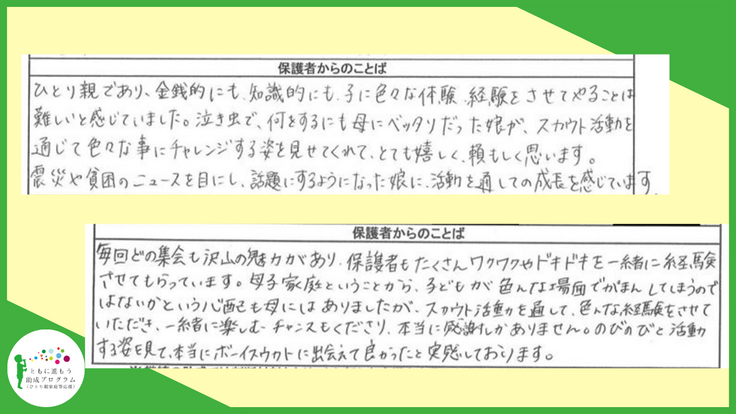 保護者からのことば
ひとり親であり、金銭的にも、知識的にも、子に色々な体験、経験をさせてやることは
難しいと感じていました。泣き虫で、何をするにも母にベッタリだった娘が、スカウト活動を
通じて色々な事にチャレンジする姿を見せてくれて、とても嬉しく、頼もしく思います。
震災や貧困のニュースを目にし、話題にするようになった娘に、活動を通しての成長を感じています
保護者からのことば
毎回どの集会も沢山の魅力があり、保護者もたくさんワクワクやドキドキを一緒に経験
させてもらっています。母子家庭ということから、子どもが色んな場面でがまんしてしまうので
はないかという心配も母にはありましたが、スカウト活動を通して、色んな経験をさせて
いただき、一緒に楽しむチャンスもくださり、本当に感謝しかありません。のびのびと活動
する姿を見て、本当にボーイスカウトに出会えて良かったと実感しております。
ともに進もう
助成プログラム
(ひとり親家庭等応援)